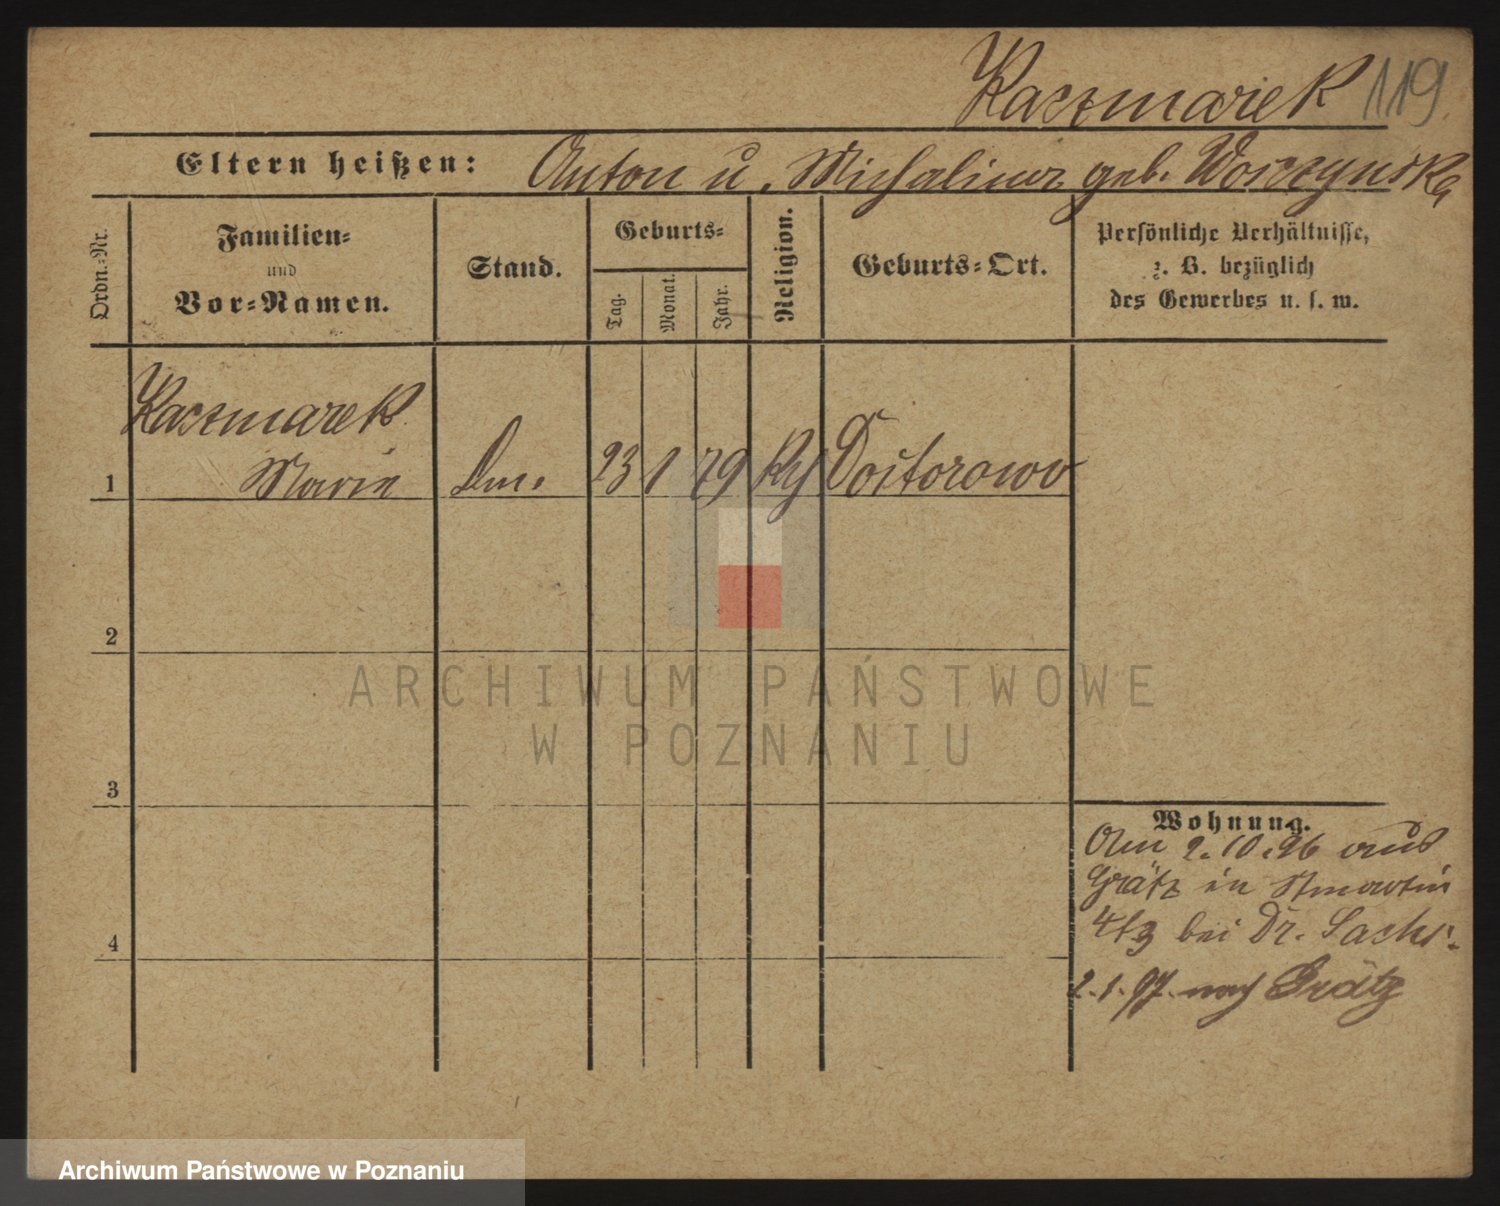 Kaczmarek 119
Eltern heißen: Anton u. Michalina geb. Woiczynska
Ordn.=Nr.
Familien=
und
Vor=Namen.
Stand.
Geburts=
Tag.
Monat.
Jahr.
Religion.
Geburts=Ort.
Persönliche Verhältnisse,
z. B. bezüglich
des Gewerbes u. s. w.
Kaczmarek
1 Marie 23 1 79 Doktorowo
2
ARCHIWUM PAŃSTWOWE
W POZNANIU
3
Wohnung.
Am 2.10.96 aus
Grätz in St Martin
4 bei Dr. Sachs.
2.1.97 nach Grätz
Archiwum Państwowe w Poznaniu